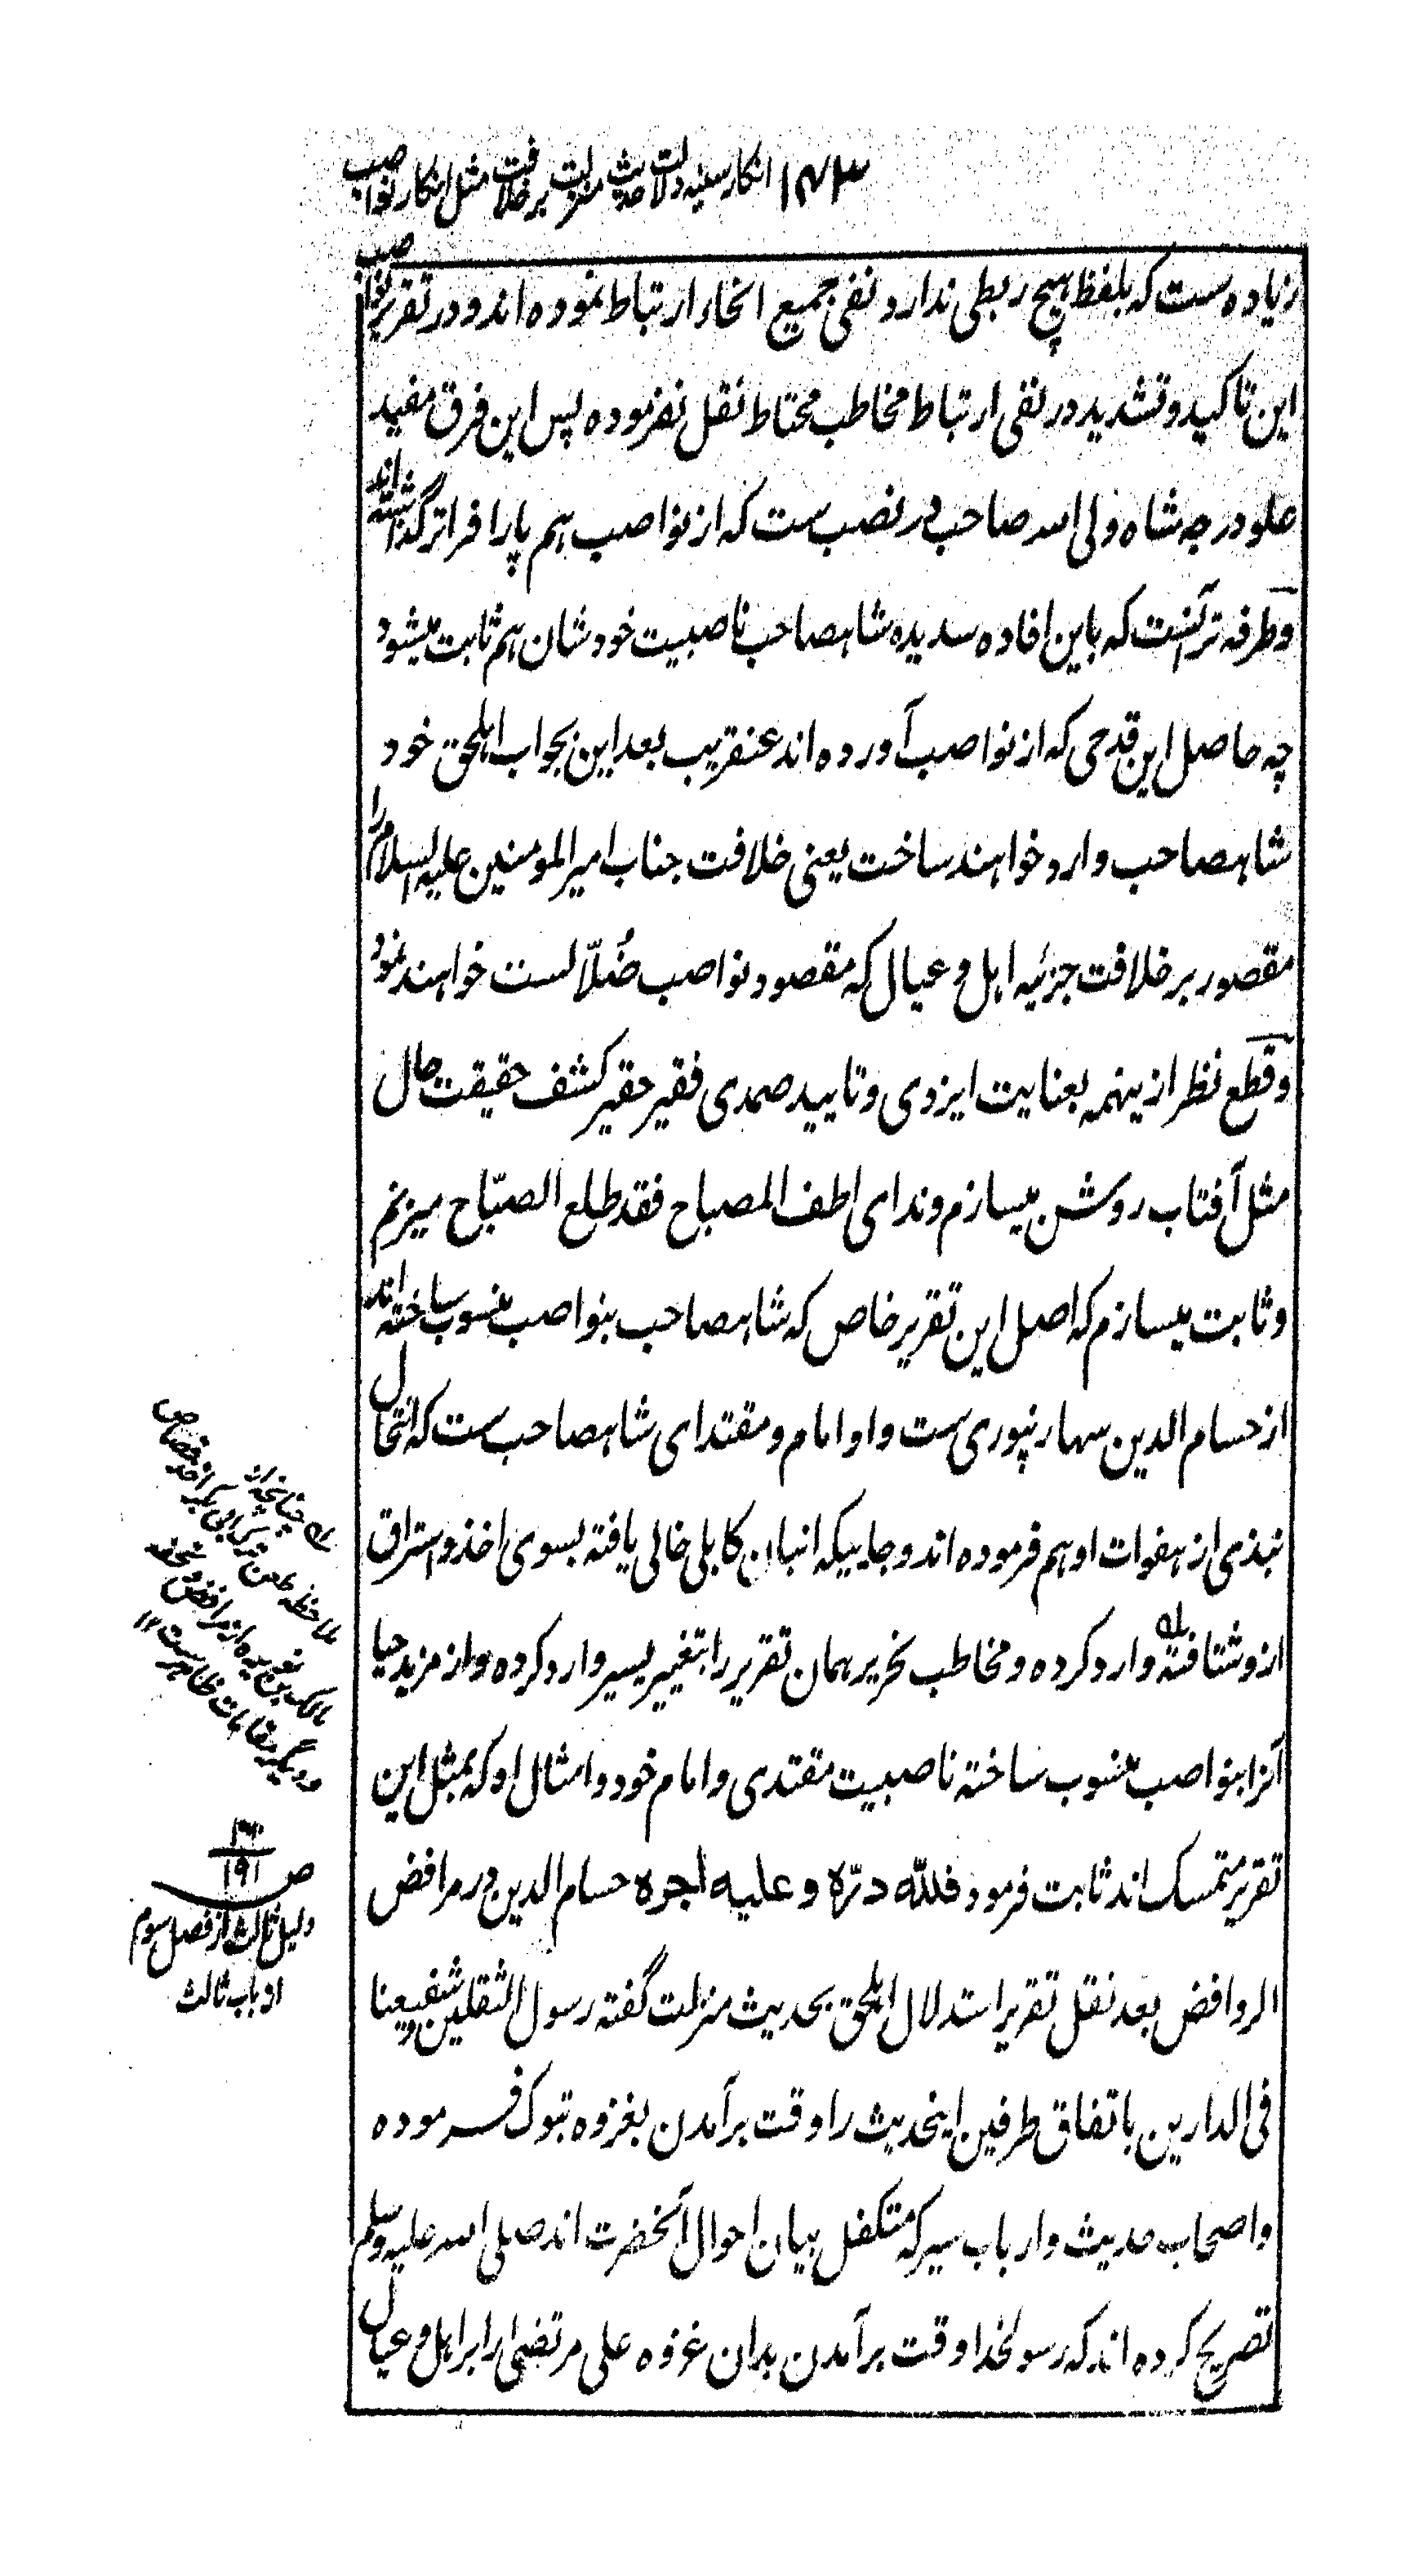 ۱۴۳ انکار سنیه دلالت حدیث منزلت بر خلافت مثل انکار نواصب
زیاده ست که بلفظ هیچ ربطی ندارد نفی جمیع انحاء ارتباط نموده اند و در تقریر نواصب
این تاکید و تشدید در نفی ارتباط مخاطب محتاط نقل نفرموده پس این فرق مفید
علو درجه شاه ولی الله صاحب در نصب ست که از نواصب هم پا را فراتر گذاشته اند
و طرفه تر آنست که باین افاده سدیده شاهصاحب ناصبیت خود شان هم ثابت میشود
چه حاصل این قدحی که از نواصب آورده اند عنقریب بعد این بجواب اهلحق خود
شاهصاحب وارد خواهند ساخت یعنی خلافت جناب امیر المومنین علیه السلام را
مقصور بر خلافت جزئیه اهل و عیال که مقصود نواصب ضُلّالست خواهند نمود
و قطع نظر ازینهمه بعنایت ایزدی و تایید صمدی فقیر حقیر کشف حقیقت حال
مثل آفتاب روشن میسازم و ندای اطف المصباح فقد طلع الصبّاح میزنم
و ثابت میسازم که اصل این تقریر خاص که شاهصاحب بنواصب منسوب ساخته اند
از حسام الدین سهارنپوری ست و او امام و مقتدای شاهصاحب ست که انتحال
نبذی از هفوات او هم فرموده اند و جاییکه انبان کابلی خالی یافته بسوی اخذ و استراق
ازو شتافته له وارد کرده و مخاطب نحریر همان تقریر را بتغییر یسیر وارد کرده و از مزید حیا
آنرا بنواصب منسوب ساخته ناصبیت مقتدی و امام خود و امثال او که بمثل این
تقریر متمسک اند ثابت فرمود فللّه درّه و علیه اجره حسام الدین در مرافض
الروافض بعد نقل تقریر استدلال اهلحق بحدیث منزلت گفته رسول الثقلین و شفیعنا
فی الدارین باتفاق طرفین اینحدیث را وقت برآمدن بغزوه تبوک فرموده
و اصحاب حدیث و ارباب سیر که متکفل بیان احوال آنحضرت اند صلی الله علیه وسلم
تصریح کرده اند که رسولخدا وقت برآمدن بدان غزوه علی مرتضی را بر اهل و عیال
له چنانچه از
ملاحظه طعن ترک ابی بکر اخذ قصاص
مالک بن نویره از مرافض و تحفه
و دیگر مقامات ظاهرست ۱۲
ص ۱۹۱
دلیل ثالث از فصل سوم
از باب ثالث